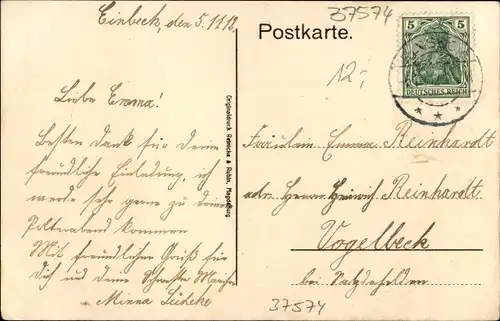 Einbeck, den 5.11.12.
Liebe Emma!
Besten Dank für Deine
freundliche Einladung, ich
werde sehr gerne zu deinem
Polterabend kommen
Mit freundlichen Gruß für
Dich und deine Schwester
Minna Lüdeke
Originaldruck Reinicke & Rubin, Magdeburg
37574
Postkarte.
12,-
5 5
DEUTSCHES REICH
Fräulein Emma Reinhardt
adr. Herrn Heinrich Reinhardt
Vogelbeck
bei Salzderhelden
37574